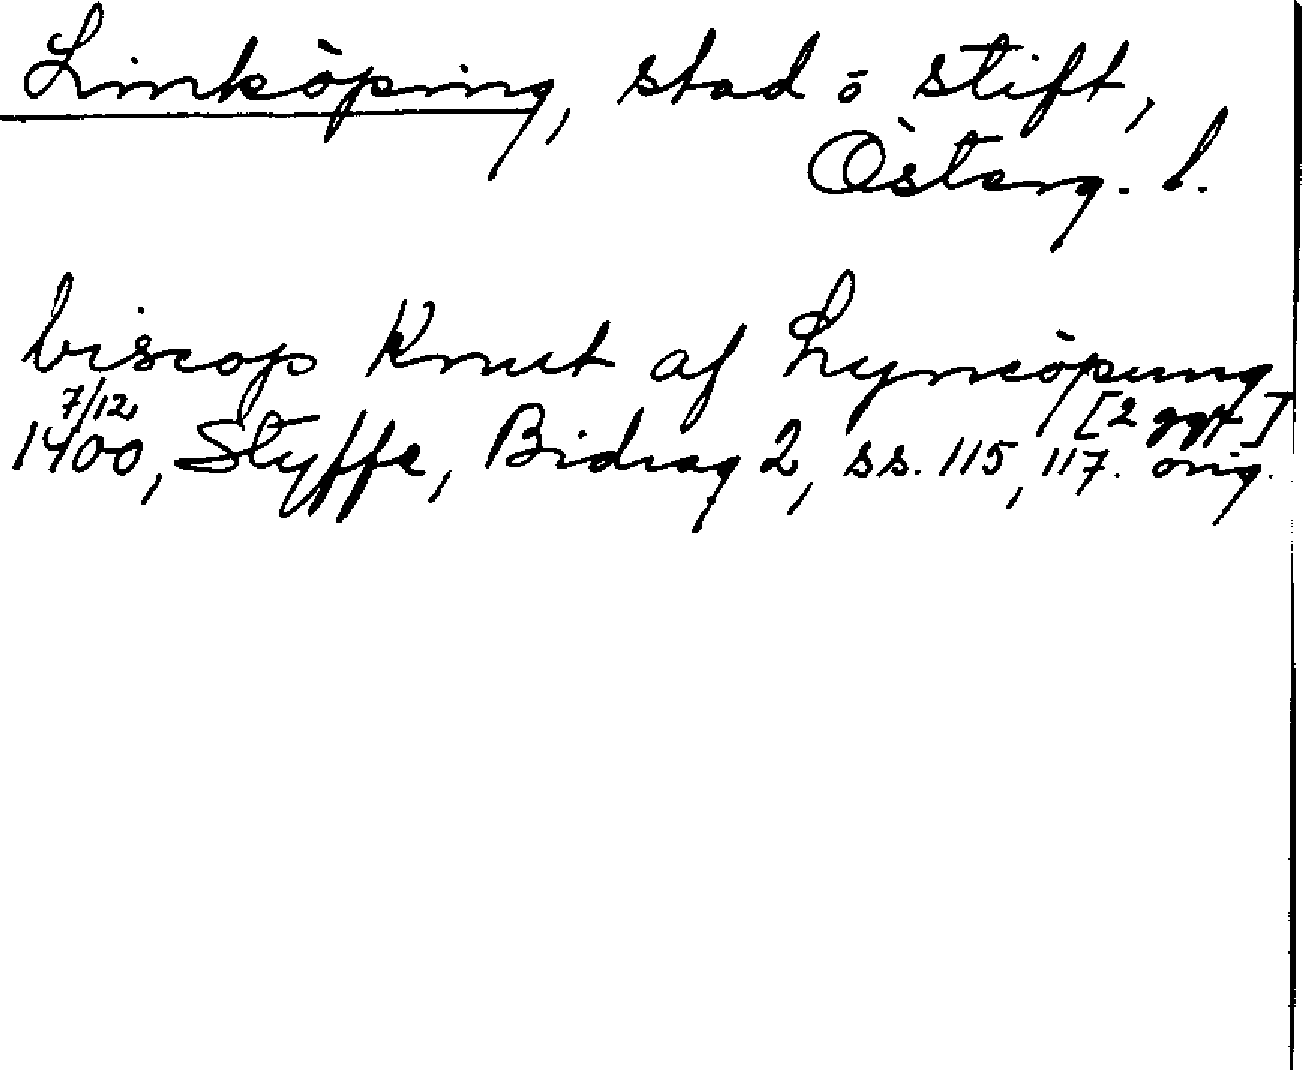 Linköping, stad o stift,
Österg. l.
biscop Knut af Lyncöpung
[2 ggr]
7/12
1400, Styffe, Bidrag 2, ss. 115, 117. orig.